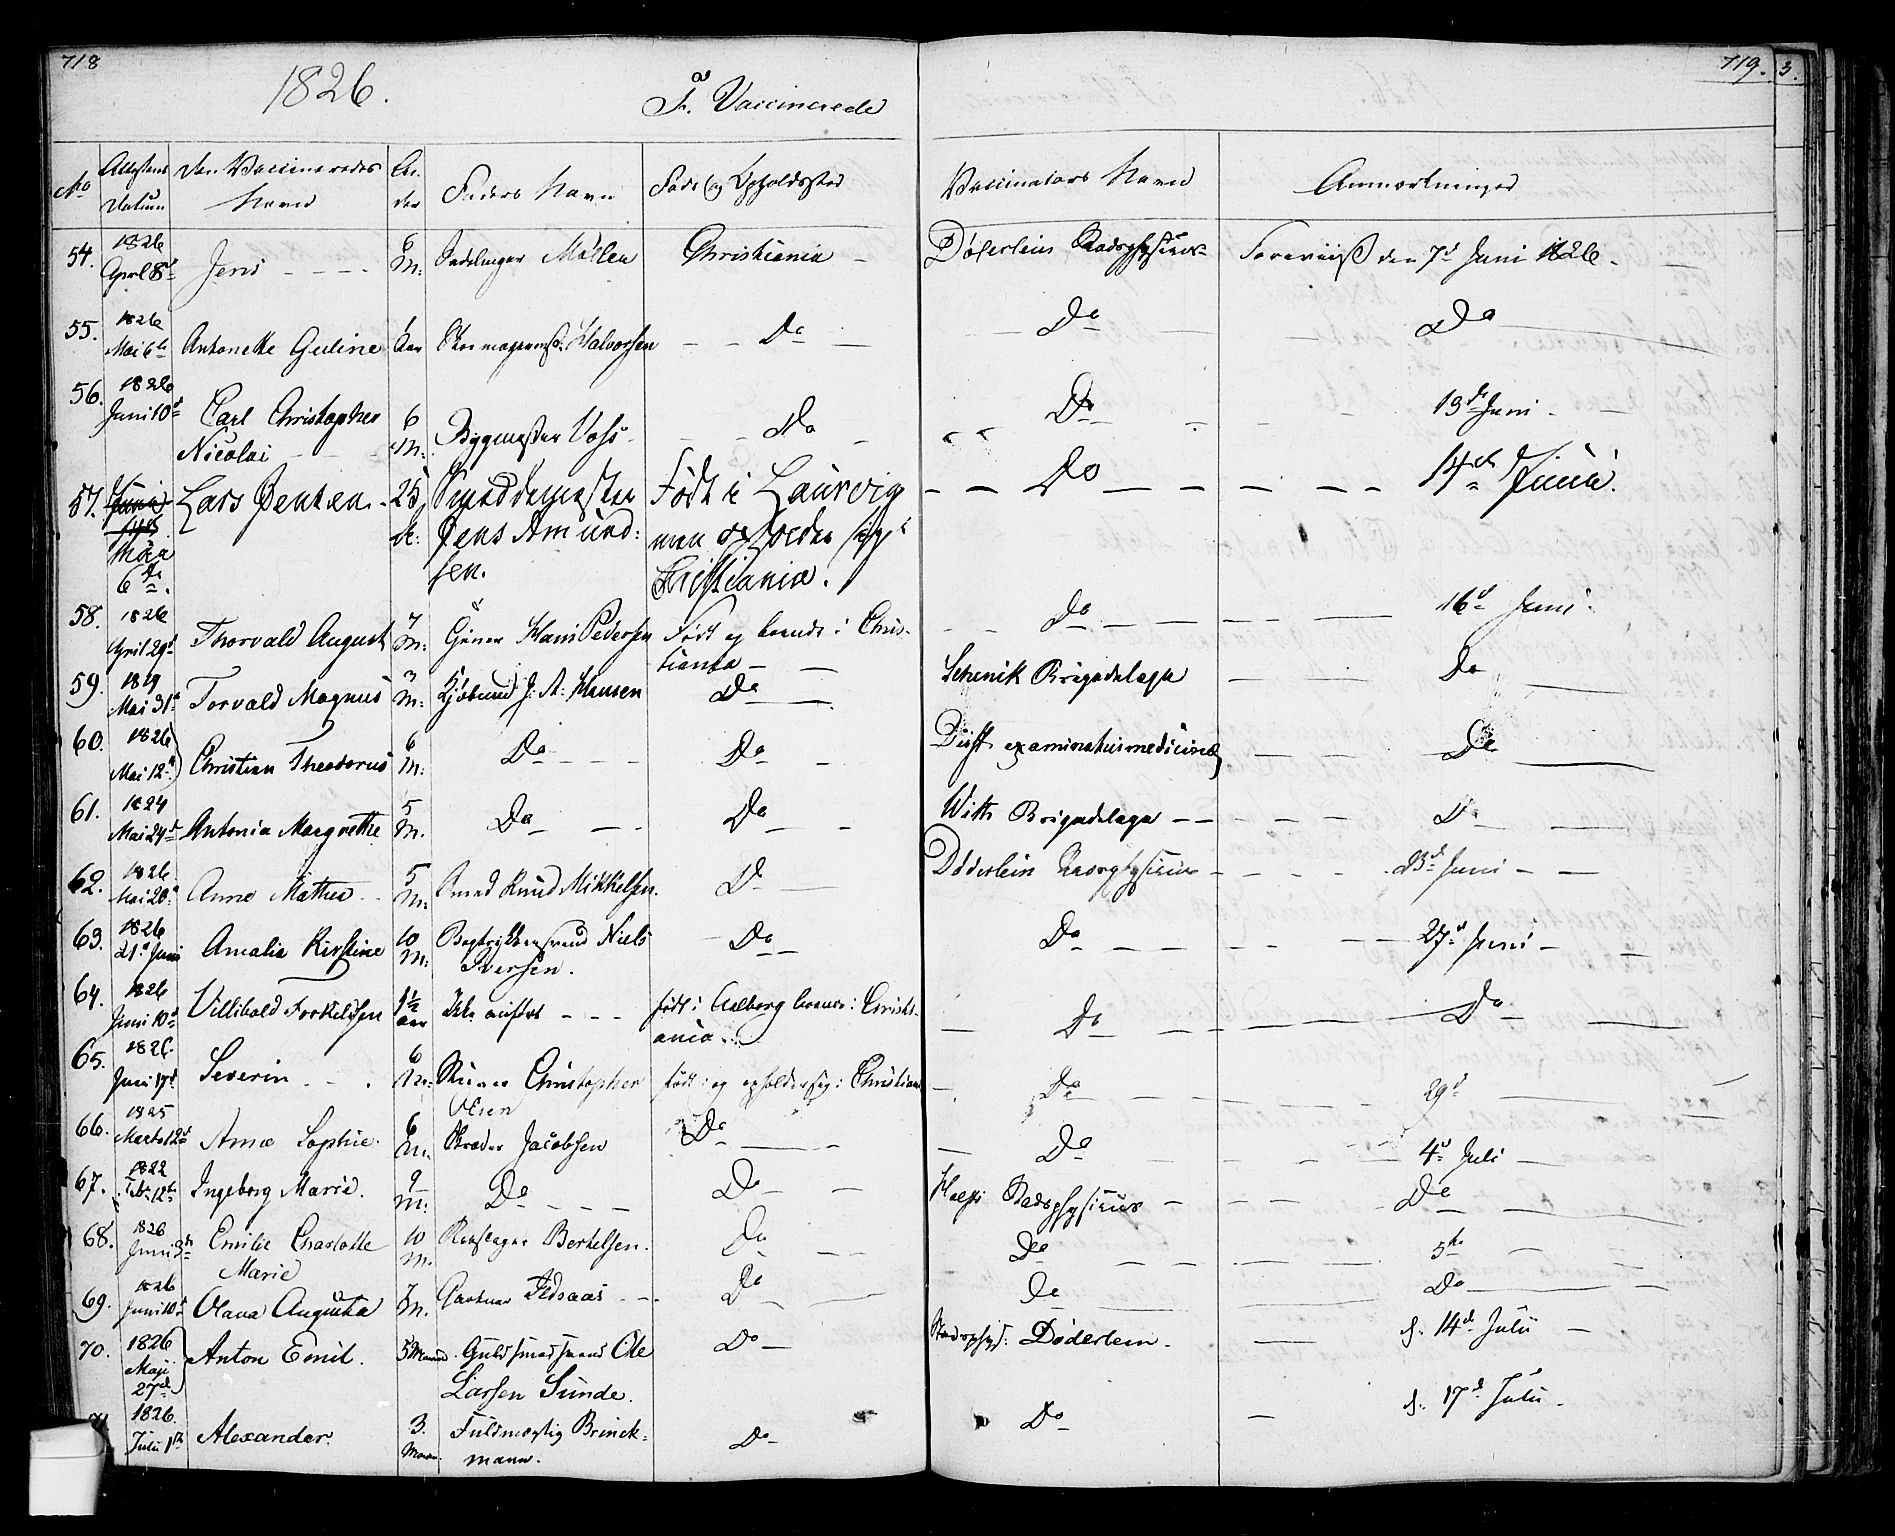 718
1826.
F. Vaccinerede
No Attestens Datum Den Vaccineredes Navn Alder Faders Navn Føde og Opholdssted
54. 1826 April 8d Jens 6 M: Sadelmager Møller Christiania
55. 1826 Mai 6te Antonette Guline Aar Skomagermest. Halvorsen Do
56. 1826 Juni 10d Carl Christopher Nicolai 6 M: Bygmester Voss Do
57. Maii 6te Lars Jensen 25 A: Smeddemester Jens Amundsen. Født i Laurvig men opholder sig i Christiania.
58. 1826 April 29d Thorvald August 7 M: Hans Pedersen Født og boende i Christiania
59. 1819 Mai 31d Torvald Magnus 3 M: Kjøbmd J: A: Hansen Do
60. 1826 Mai 12d Christian Theodorus 6 M: Do Do
61. 1824 Mai 24d Antonia Margrethe 5 M. Do Do
62. 1826 Mai 20d Anne Mathea 5 M: Smed Knud Mikkelsen. Do
63. 1826 21d Juni Amalia Kirstine 10 M: Bogtrykkersvend Niels Iversen. Do
64. 1826 Juni 10d Villibald Torkildsen 1½ aar Ikke anført født i Aalborg boende i Christiania
65. 1826. Juni 17d Severin 6 M: Christopher Olsen født og opholder sig i Christiania
66. 1825 Marts 12d Anne Sophie. 6 M. Skræder Jacobsen Do
67. 1822 Feb. 12te Ingeborg Marie. 9 M: Do Do
68. 1826 Juni 3de Emilie Charlotte Marie 10 M. Bertelsen. Do
69. 1826 Juni 10d Olava Augusta 7 M. Gartner Do
70. 1826 Maji 27de Anton Emil. 5 Maaned. Guldsmedsvend Ole Larsen Sunde. Do
71 1826. Julii 1ste Alexander. 3. Maan. Fuldmægtig Brinckmann. Do
719. 3.
Vaccinators Navn Anmærkninger
Døderlein Stadsphysicus Foreviist den 7d Juni 1826.
Do Do
Do 13de Juni
Do 14de Junii.
Do 16d Juni.
Schenik Brigadelæge Do
examinatus medicinæ Do
With Brigadelæge Do
Døderlein Stadsphysicus 23de Juni
Do 27d Juni
Do Do
Do 29d
Do 4d Juli
Stadsphysicus Do
Do 5te
Do Do
Stadsphys: Døderlein. d. 14de Julii
Do d. 17d Julii.